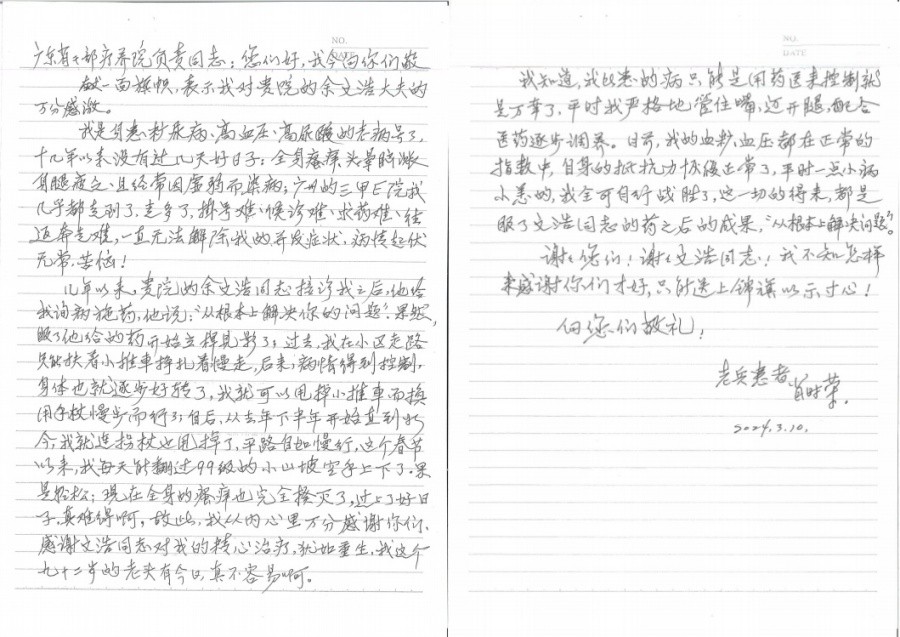 NO.
DATE
广东省干部疗养院负责同志：您们好，我今向你们敬
献一面旗帜，表示我对贵院的余文浩大夫的
万分感激。
我是身患糖尿病、高血压、高尿酸的老病号了，
十几年以来没有过几天好日子：全身瘙痒、头晕脑胀、
身腿疲乏、且经常因虚弱而染病；广州的三甲医院我
几乎都走到了，走多了，掛号难、候诊难、求药难、往
返奔走难，一直无法解除我的并发症状，病情起伏
无常，苦恼！
几年以来，贵院的余文浩同志接诊我之后，他给
我询病施药，他说："从根本上解决你的问题"，果然，
服了他给的药开始立杆见影了；过去，我在小区走路
只能扶着小推車挣扎着慢走，后来，病情得到控制，
身体也就逐步好转了，我就可以甩掉小推車而换
用手杖慢步而行了；自后，从去年下半年开始直到
今，我就连拐杖也甩掉了，平路自如慢行，这个春节
以来，我每天能翻过99级的小山坡空手上下了，
是轻松；现在全身的瘙痒也完全撲灭了，过上了好日
子，真难得啊，故此，我从内心里万分感谢你们、
感谢文浩同志对我的精心治疗，犹如重生，我这个
九十二岁的老头有今日，真不容易啊。
NO.
DATE
我知道，我此患的病只能是用药医来控制就
是万幸了，平时我严格地管住嘴，迈开腿，配合
医药逐步调养。日前，我的血糖，血压都在正常的
指数中，自身的抵抗力恢復正常了，平时一点小病
小恙的，我全可自行战胜了，这一切的得来，都是
服了文浩同志的药之后的成果，"从根本上解决问题"。
谢谢您们！谢谢文浩同志！我不知怎样
来感谢你们才好，只能送上锦旗以示寸心！
向您们敬礼！
老兵患者
肖时荣
2024.3.10.